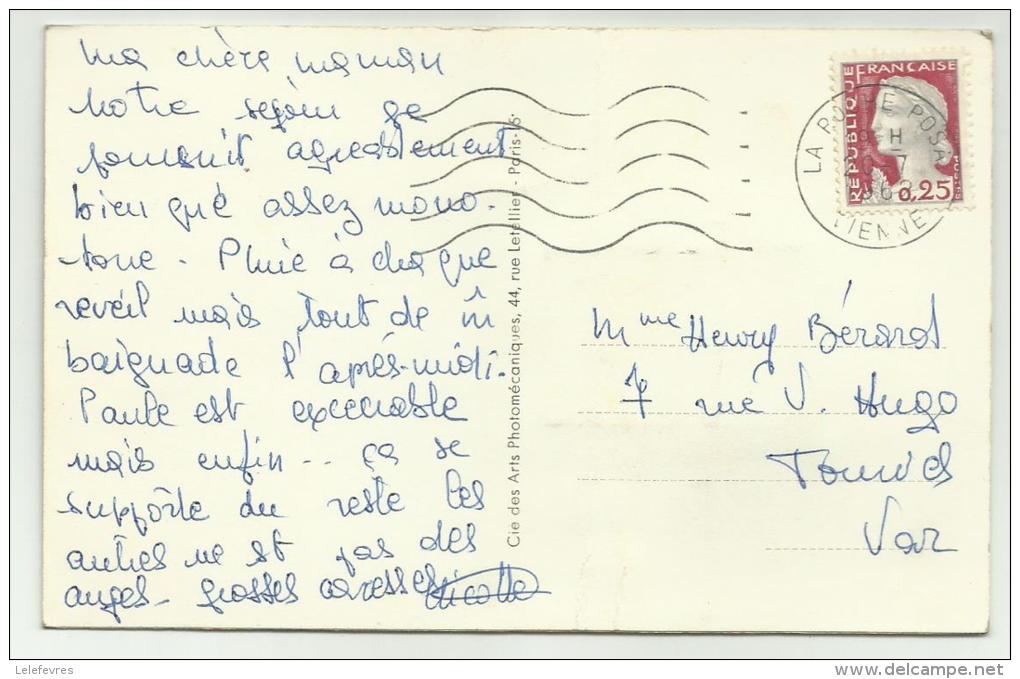 ma chère maman
Notre séjour se
poursuit agréablement
bien que assez mono-
tone - Pluie à chaque
reveil mais tout de m̂
baignade l'après-midi.
Paule est execrable
mais enfin.. ça se
supporte du reste les
autres ne st pas des
anges - grosses caresses Nicolle
Cie des Arts Photomécaniques, 44, rue Letellier - Paris-15e
RÉPUBLIQUE FRANÇAISE
0,25
LA POSA
H
-7
196
VIENNE
Mme Henry Bérard
7 rue V. Hugo
Tourves
Var
Lelefevres
www.delcampe.net